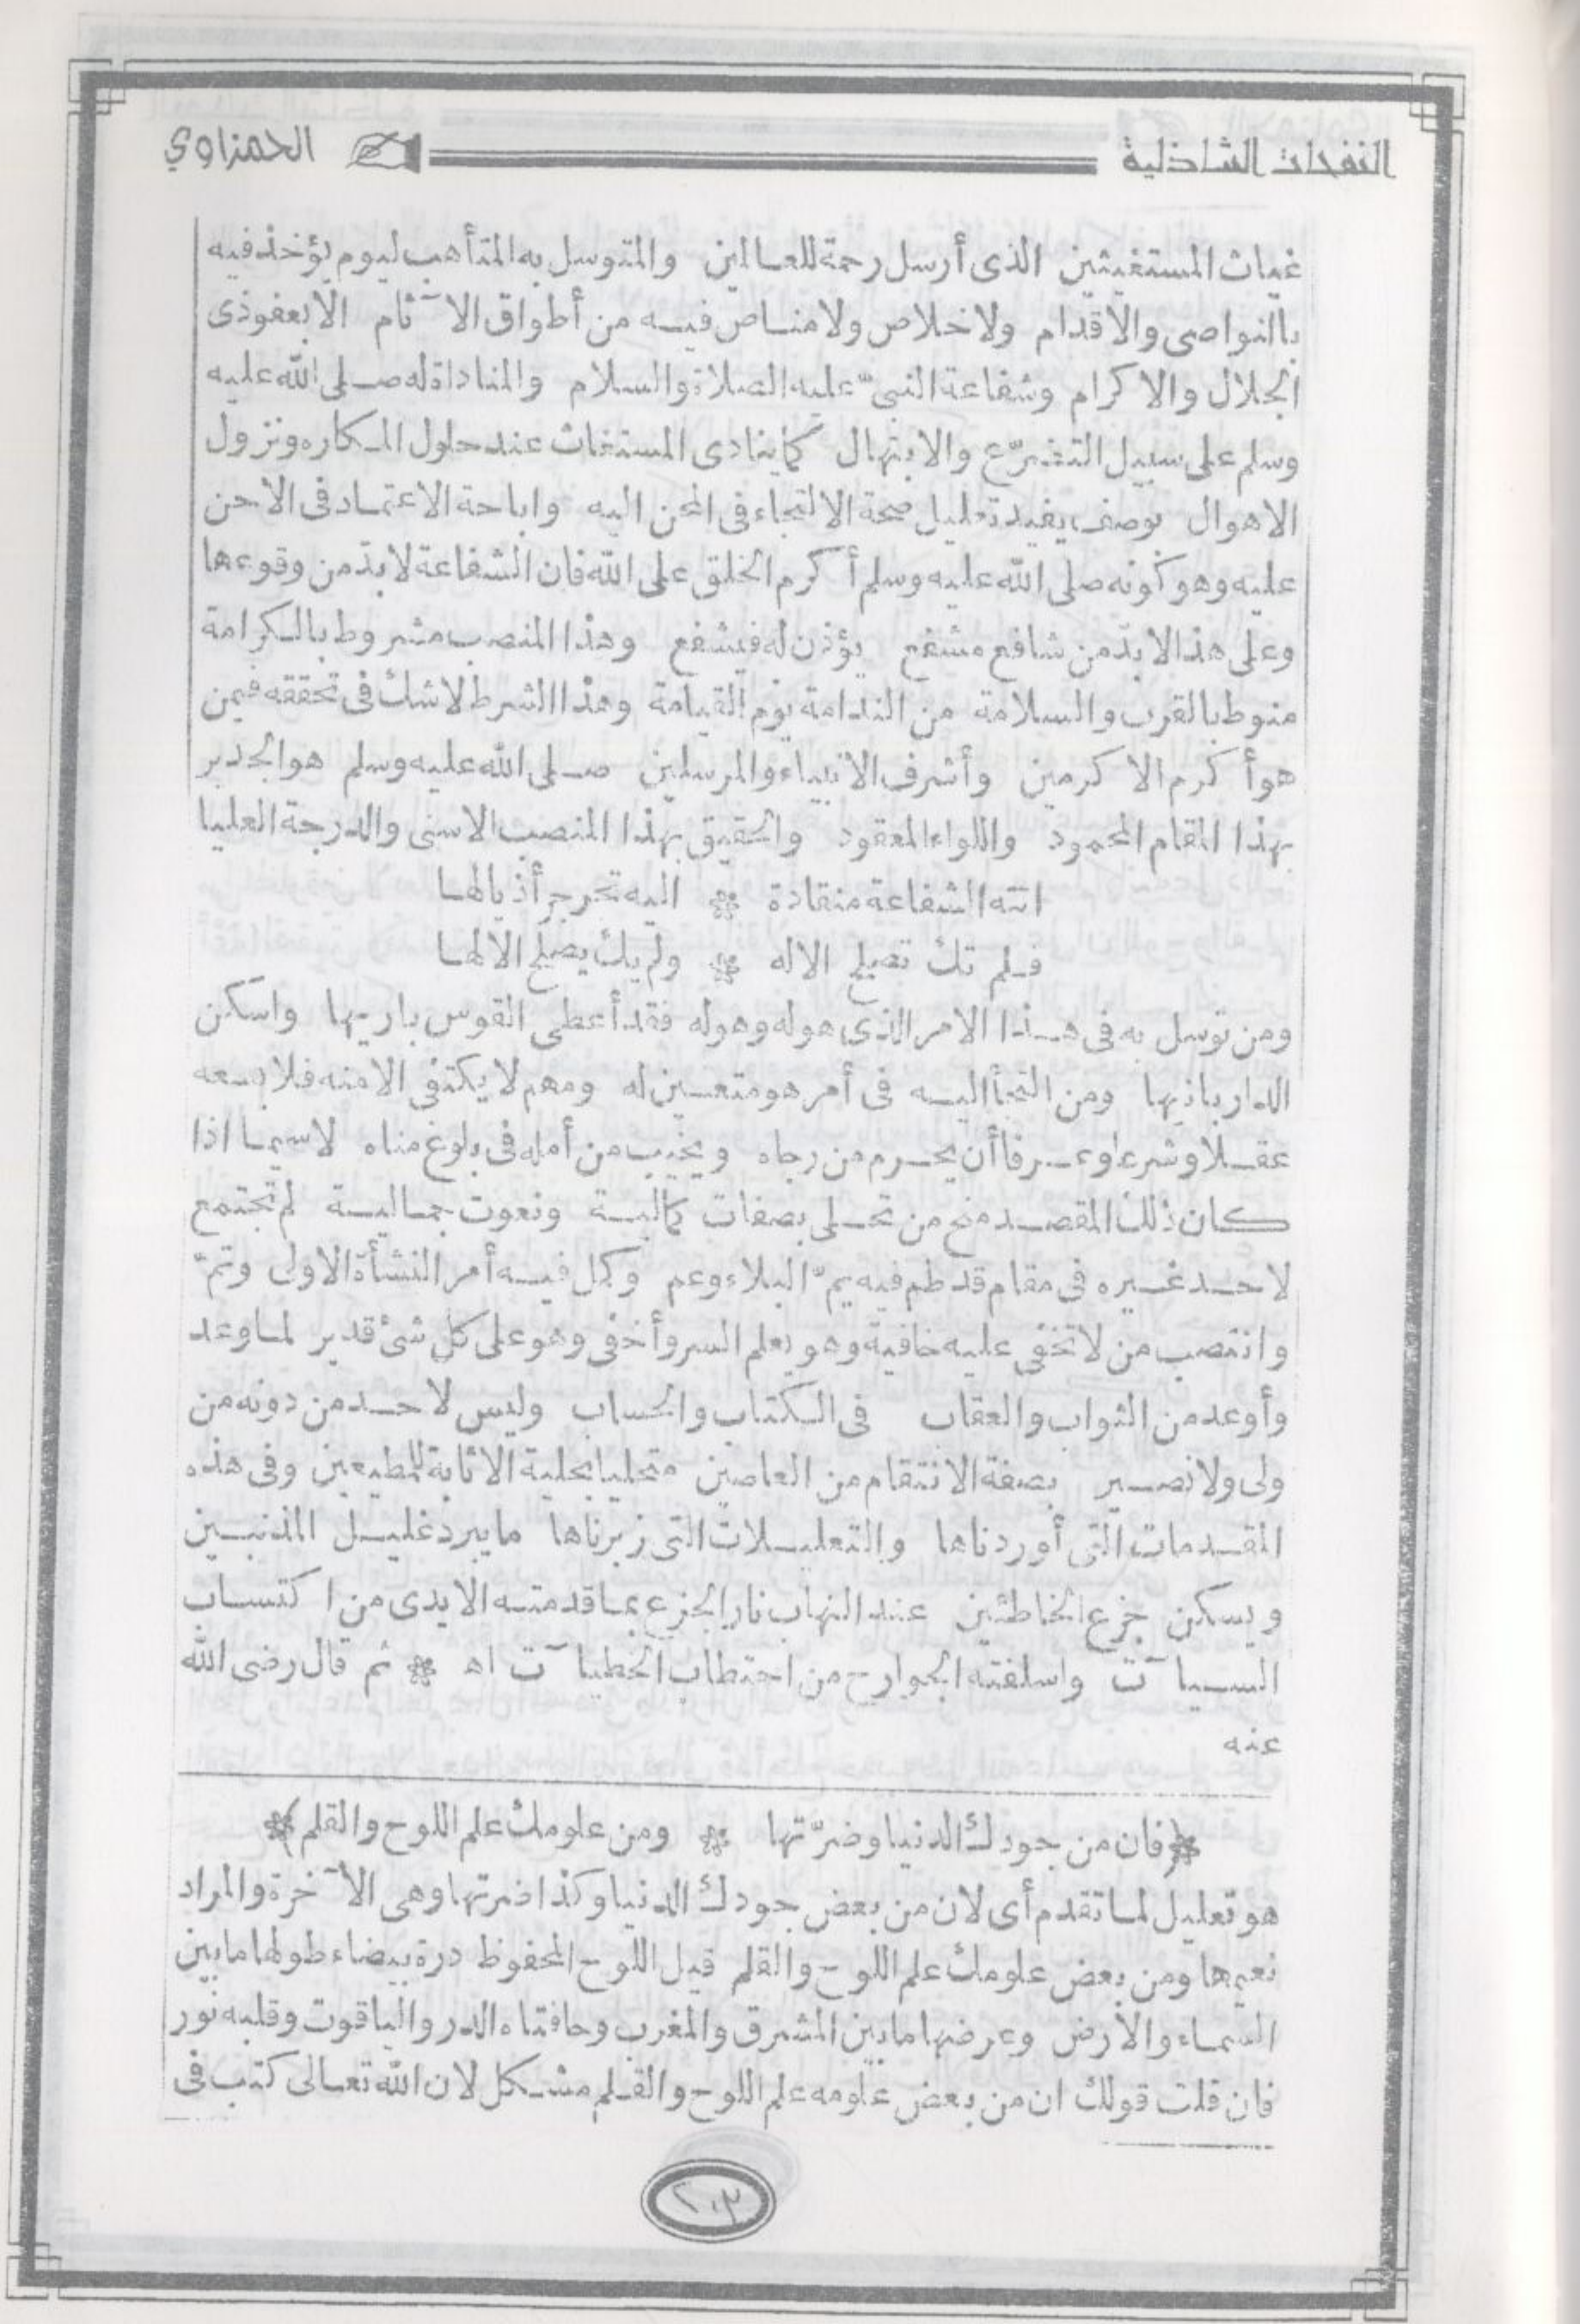 النفحات الشاذلية الحمزاوي
غياث المستغيثين الذى أرسل رحمة للعالمين والمتوسل به المتأهب ليوم يؤخذ فيه
بالنواصى والاقدام ولا خلاص ولا مناص فيه من أطواق الآثام الا بعفو ذى
الجلال والاكرام وشفاعة النبىّ عليه الصلاة والسلام والمناداة له صلى الله عليه
وسلم على سبيل التضرّع والابتهال كما ينادى المستغاث عند حلول المكاره ونزول
الاهوال بوصف يفيد تعليل صحة الالتجاء فى المحن اليه واباحة الاعتماد فى الاحن
عليه وهو كونه صلى الله عليه وسلم أكرم الخلق على الله فان الشفاعة لا بدّ من وقوعها
وعلى هذا لا بدّ من شافع مشفع يؤذن له فيشفع وهذا المنصب مشروط بالكرامة
منوط بالقرب والسلامة من الندامة يوم القيامة وهذا الشرط لا شك فى تحققه فيمن
هو أكرم الاكرمين وأشرف الانبياء والمرسلين صلى الله عليه وسلم هو الجدير
بهذا المقام المحمود واللواء المعقود والحقيق بهذا المنصب الاسنى والدرجة العليا
اتته الشفاعة منقادة * اليه تجرجر أذيالها
فلم تك تصلح الا له * ولم يك يصلح الا لها
ومن توسل به فى هذا الامر الذى هو له وهو له فقد أعطى القوس باريها واسكن
الدار بانيها ومن التجأ اليه فى أمر هو متعين له ومهم لا يكتفى الا منه فلا يسعه
عقلا وشرعا وعرفا أن يحرم من رجاه ويخيب من أمله فى بلوغ مناه لا سيما اذا
كان ذلك المقصد منح من تحلى بصفات كمالية ونعوت جمالية لم تجتمع
لاحد غيره فى مقام قد طم فيه يمّ البلاء وعم وكمل فيه أمر النشأة الاولى وتمّ
وانتصب من لا تخفى عليه خافية وهو يعلم السر وأخفى وهو على كل شئ قدير لما وعد
وأوعد من الثواب والعقاب فى الكتاب والحساب وليس لاحد من دونه من
ولى ولا نصير بصفة الانتقام من العاصين متحليا بحلية الاثابة للمطيعين وفى هذه
المقدمات التى أوردناها والتعليلات التى زبرناها ما يبرد غليل المذنبين
ويسكن جزع الخاطئين عند التهاب نار الجزع بما قدمته الايدى من اكتساب
السيآت واسلفته الجوارح من احتطاب الخطيآت اه * ثم قال رضى الله
عنه
* (فان من جودك الدنيا وضرّتها * ومن علومك علم اللوح والقلم) *
هو تعليل لما تقدم أى لان من بعض جودك الدنيا وكذا ضرتها وهى الآخرة والمراد
نعيمها ومن بعض علومك علم اللوح والقلم قيل اللوح المحفوظ درة بيضاء طولها ما بين
السماء والارض وعرضها ما بين المشرق والمغرب وحافتاه الدر والياقوت وقلبه نور
فان قلت قولك ان من بعض علومه علم اللوح والقلم مشكل لان الله تعالى كتب فى
٢٠٣